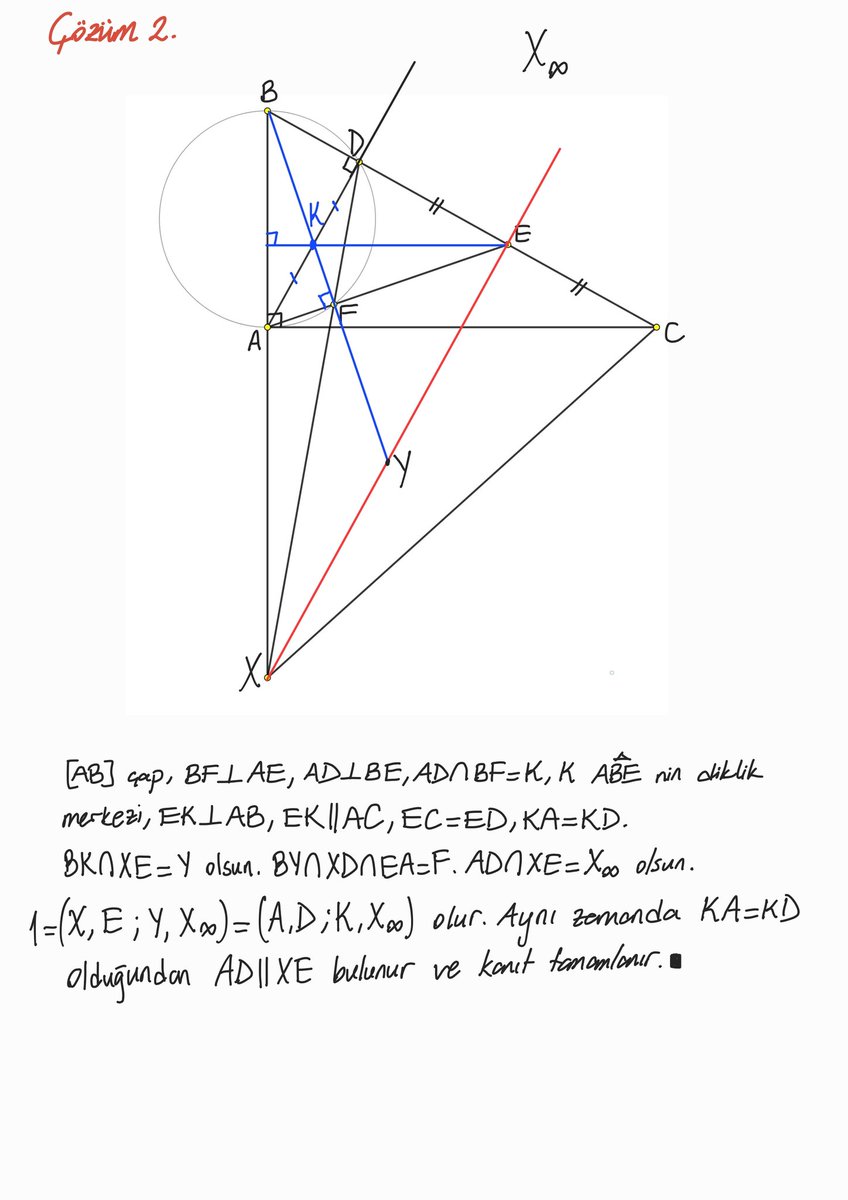 Çözüm 2.
X∞
B
D
K
E
F
A
C
Y
X
[AB] çap, BF⊥AE, AD⊥BE, AD∩BF=K, K AB̂E nin diklik
merkezi, EK⊥AB, EK∥AC, EC=ED, KA=KD.
BK∩XE=Y olsun. BY∩XD∩EA=F. AD∩XE=X∞ olsun.
1=(X,E;Y,X∞)=(A,D;K,X∞) olur. Aynı zamanda KA=KD
olduğundan AD∥XE bulunur ve kanıt tamamlanır.■